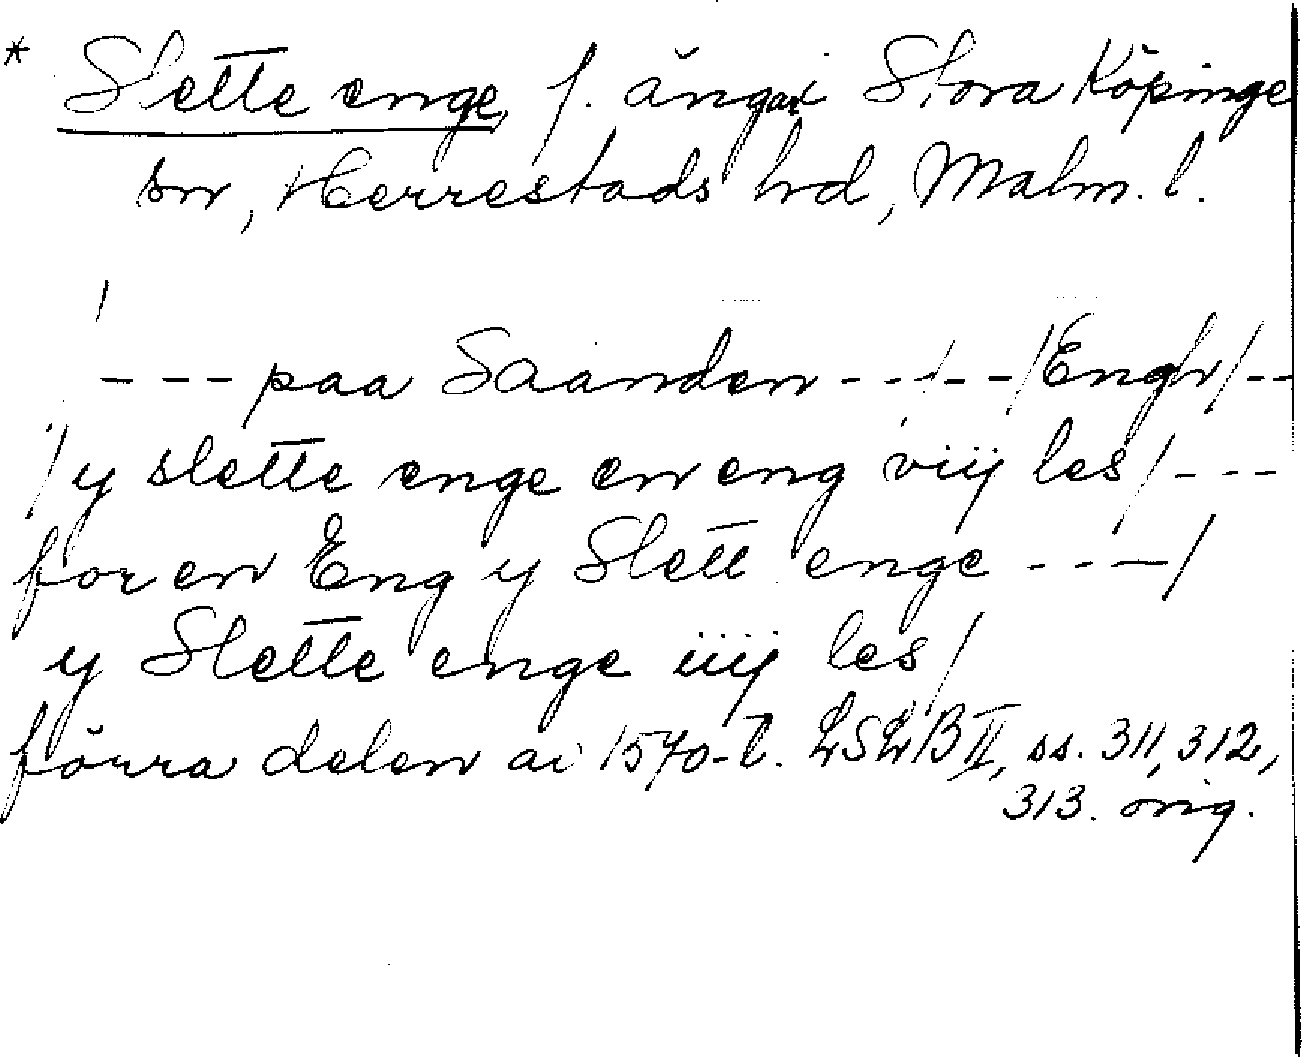 * Slette enge, f. ängar i Stora Köpinge
sn, Herrestads hrd, Malm. l.
--- paa Saanden ---/--/Engh/--
/ y slette enge en eng viij les/---
for en Eng y Slett enge ---/
y Slette enge iiij les/
förra delen av 1570-t. LSLB II, ss. 311, 312,
313. orig.